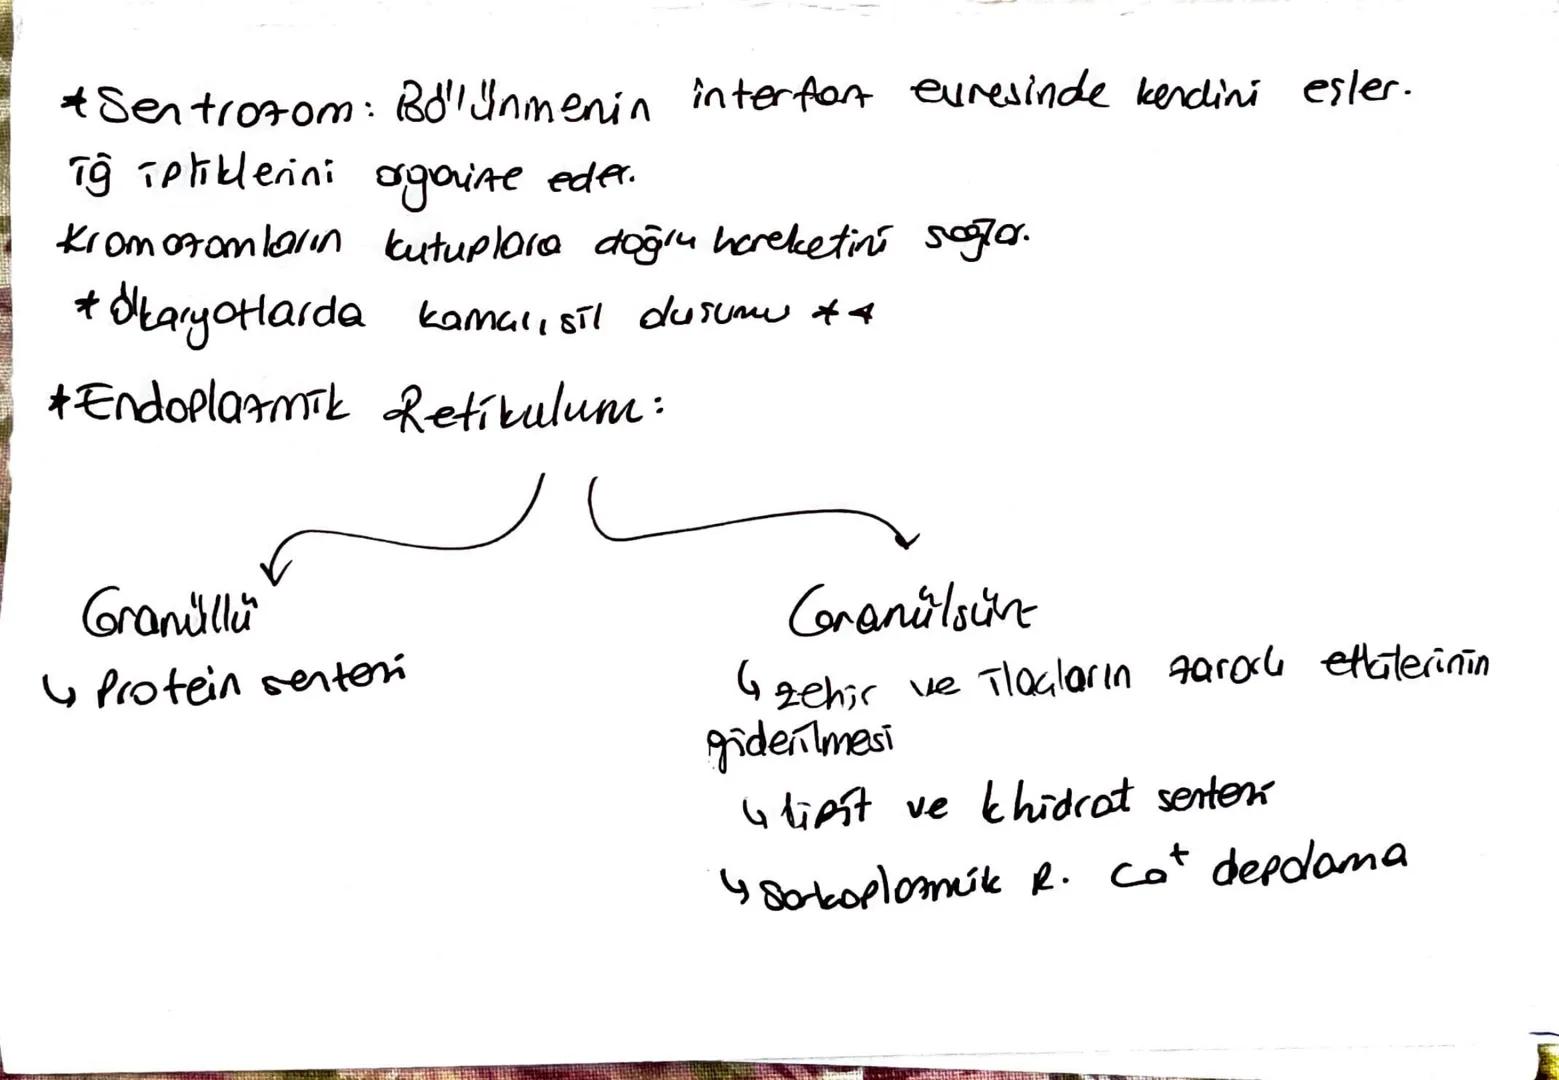 * Sentrozom: Bölünmenin interfaz evresinde kendini eşler.
İğ ipliklerini organize eder.
Kromozomların kutuplara doğru hareketini sağlar.
* Ökaryotlarda kamçı, sil *
* Endoplazmik Retikulum:
Granüllü
↳ Protein sentezi
Granülsüz
↳ zehir ve ilaçların zararlı etkilerinin
giderilmesi
↳ lipit ve k hidrat sentezi
↳ Sarkoplazmik R. Ca⁺ depolama